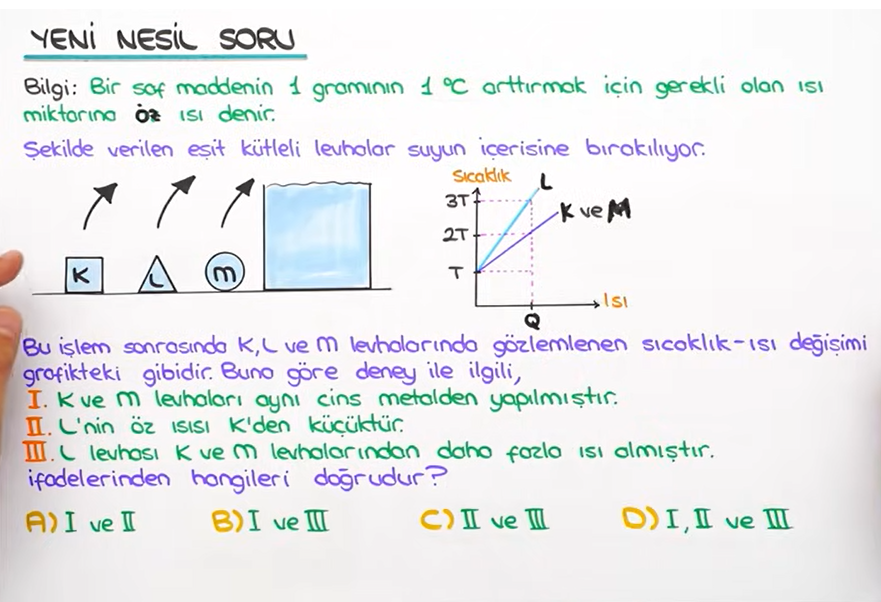 YENİ NESİL SORU
Bilgi: Bir saf maddenin 1 gramının 1 °C arttırmak için gerekli olan ısı
miktarına öz ısı denir.
Şekilde verilen eşit kütleli levhalar suyun içerisine bırakılıyor.
K
L
M
Sıcaklık
L
3T
K ve M
2T
T
Isı
Q
Bu işlem sonrasında K, L ve M levhalarında gözlemlenen sıcaklık-ısı değişimi
grafikteki gibidir. Buna göre deney ile ilgili,
I. K ve M levhaları aynı cins metalden yapılmıştır.
II. L'nin öz ısısı K'den küçüktür.
III. L levhası K ve M levhalarından daha fazla ısı almıştır.
ifadelerinden hangileri doğrudur?
A) I ve II B) I ve III C) II ve III D) I, II ve III